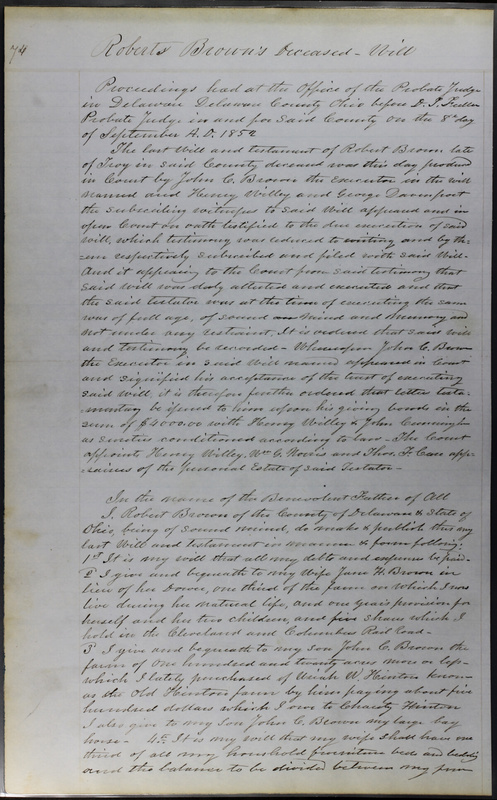 74
Roberts Brown's Deceased - Will
Proceedings had at the Office of the Probate Judge
in Delaware Delaware County Ohio before D. T. Fuller
Probate Judge in and for Said County on the 8th day
of September A.D. 1852
The last Will and testament of Robert Brown late
of Troy in Said County deceased was this day produced
in Court by John C. Brown the Executor in the will
named and Henry Willey and George Davenport
the subscribing witnesses to Said Will appeared and in
open Court on oath testified to the due execution of said
will, which testimony was reduced to writing and by th-
-em respectively subscribed and filed with said Will.
And it appearing to the Court from said testimony that
said will was duly attested and executed and that
the said testator was at the time of executing the same
was of full age, of sound mind and memory and
not under any restraint, It is ordered that said will
and testimony be recorded - Whereupon John C. Brown
the Executor in said Will named appeared in Court
and signified his acceptance of the trust of executing
said will, it is therefore further ordered that letters testa-
-mentary be issued to him upon his giving bonds in the
sum of $4000.00 with Henry Willey & John
as sureties conditioned according to law - The Court
appoints Henry Willey, Wm G. Norris and Thos. F. Case app-
-raisers of the Personal Estate of said Testator -
In the name of the Benevolent Father of All
I, Robert Brown of the County of Delaware & State of
Ohio, being of sound mind, do make & publish this my
last Will and testament in manner & form following:
1st It is my will that all my debts and expenses be paid -
2d I give and bequeath to my Wife Jane H. Brown in
lieu of her Dower, one third of the farm on which I now
live during her natural life, and one years provision for
herself and her two children, and five shares which I
hold in the Cleveland and Columbus Rail Road -
3d I give and bequeath to my son John C. Brown the
farm of one hundred and twenty acres more or less -
which I lately purchased of Uriah W. Hinton know-
as the Old Hinton farm by him paying about five
hundred dollars which I owe to Charity Hinton
I also give to my son John C. Brown my large bay
horse - 4th It is my will that my wife shall have one
third of all my household furniture beds and bedding
and the balance to be divided between my